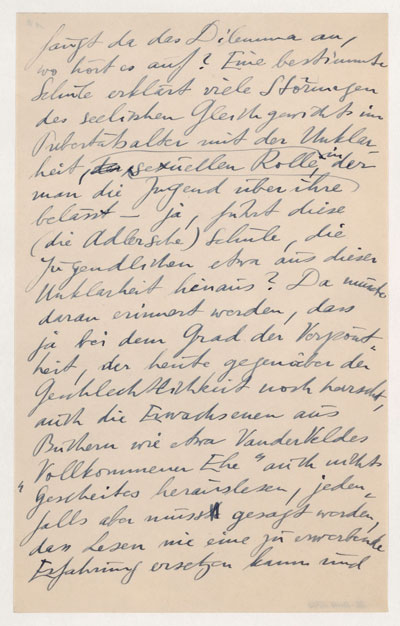 fängt da das Dilemma an,
wo hört es auf? Eine bestimmte
Schule erklärt viele Störungen
des seelischen Gleichgewichts im
Pubertätsalter mit der Unklar-
heit, sexuellen Rolle, in der
man die Jugend über ihre
belässt – ja, führt diese
(die Adlersche) Schule, die
Jugendlichen etwa aus dieser
Unklarheit hinaus? Da müsste
daran erinnert werden, dass
ja bei dem Grad der Verpönt-
heit, der heute gegenüber der
Geschlechtlichkeit noch herrscht,
auch die Erwachsenen aus
Büchern wie etwa VanderVeldes
"Vollkommener Ehe" auch nichts
Gescheites herauslesen, jeden-
falls aber muss gesagt werden,
dass Lesen nie eine zu erwerbende
Erfahrung ersetzen kann und